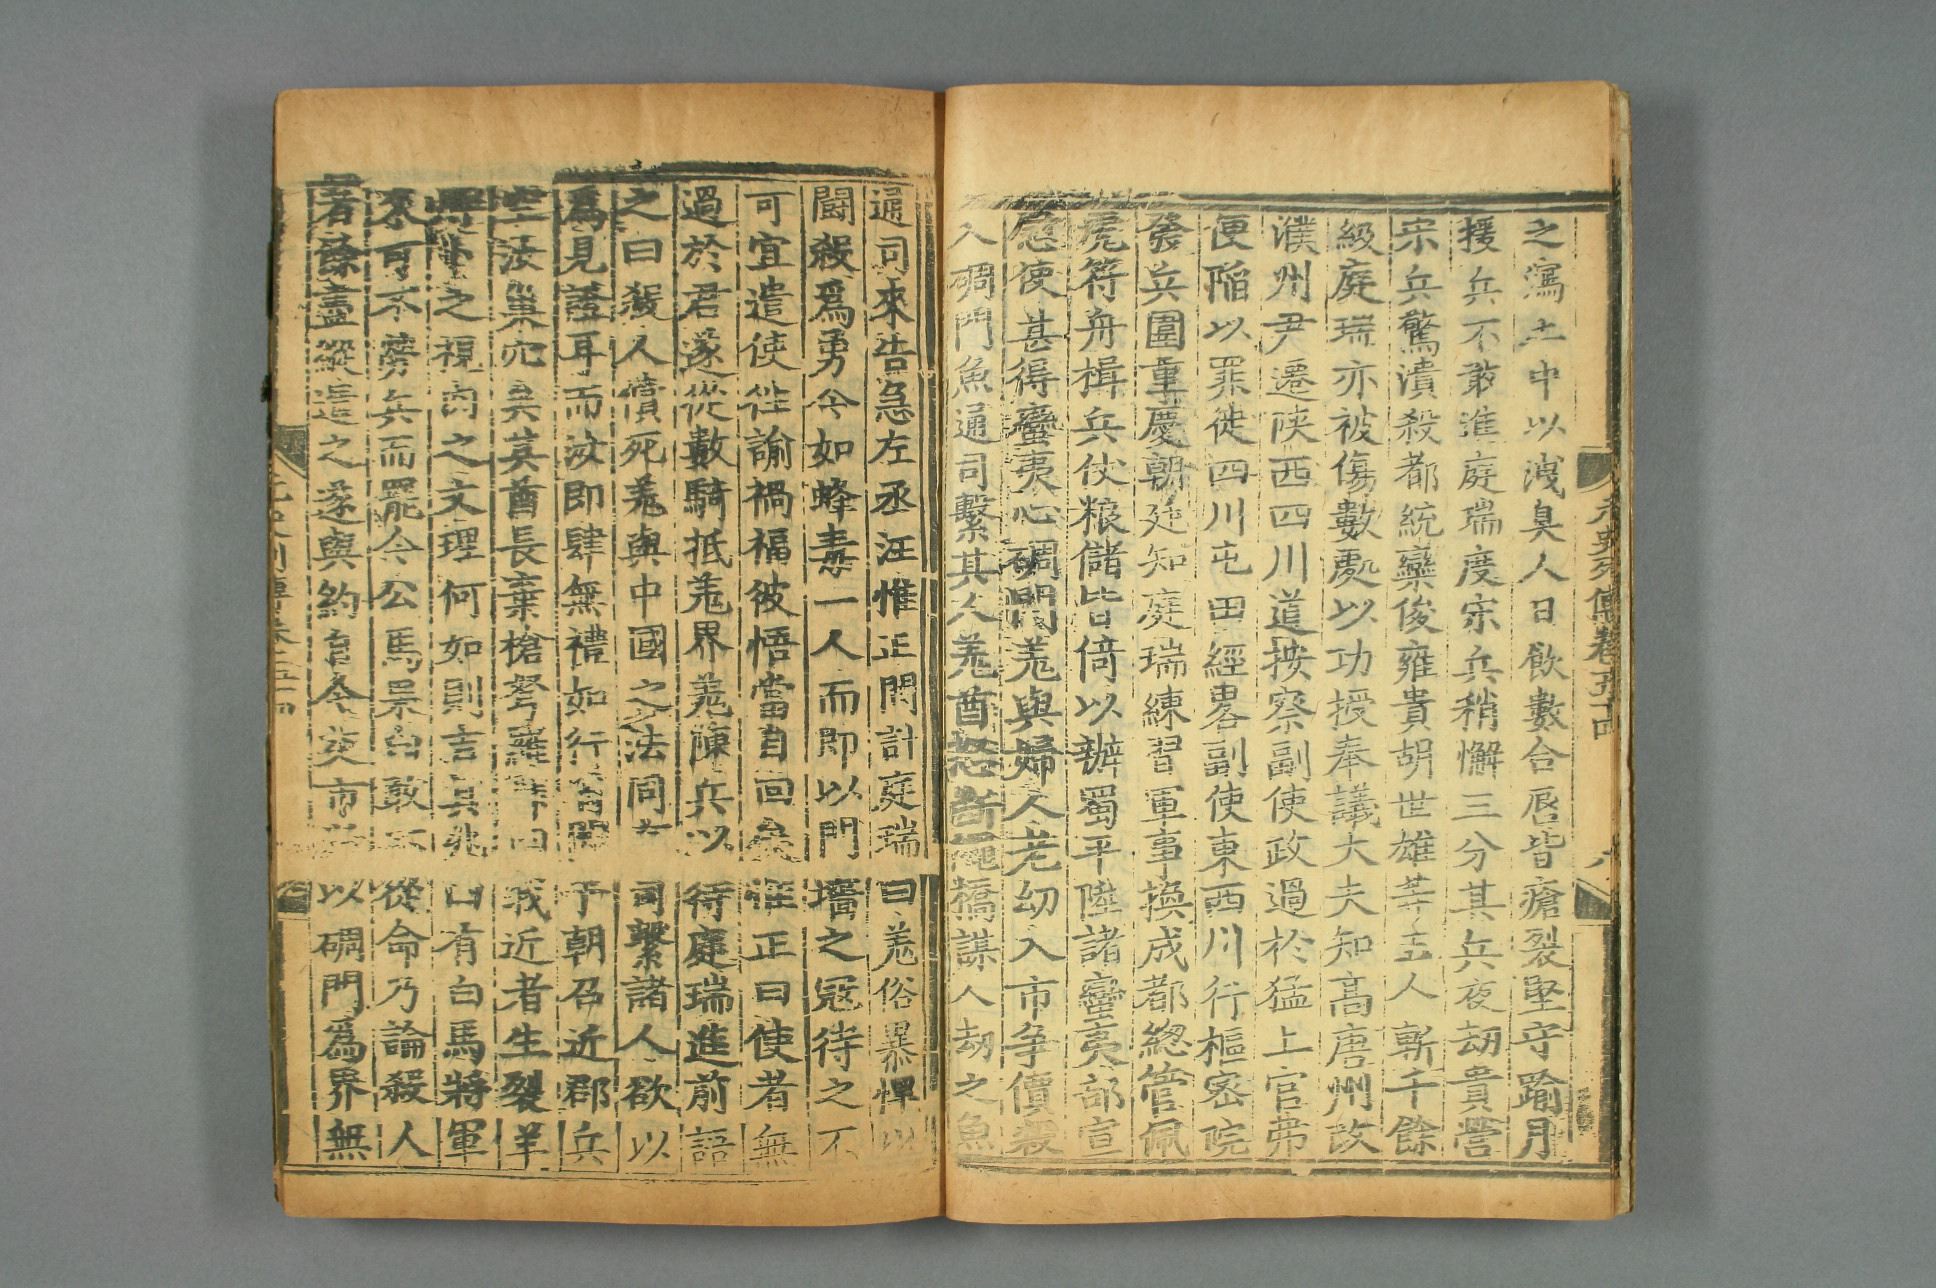 之瀉土中以洩臭人日飲數合脣皆瘡裂堅守踰月
援兵不敢進庭瑞度宋兵稍懈三分其兵夜劫貴營
宋兵驚潰殺都統欒俊雍貴胡世雄等五人斬千餘
級庭瑞亦被傷數處以功授奉議大夫知高唐州改
濮州尹遷陝西四川道按察副使政過於猛上官弗
便陷以罪徙四川屯田經畧副使東西川行樞密院
發兵圍重慶朝廷知庭瑞練習軍事換成都總管佩
虎符舟楫兵仗粮儲皆倚以辦蜀平陞諸蠻夷部宣
慰使甚得蠻夷心碉門羗與婦人老幼入市争價殺
入碉門魚通司繫其人羗酋怒断繩橋謀人劫之魚
通司來告急左丞汪惟正問計庭瑞曰羗俗暴悍以
鬪殺爲勇今如蜂毒一人而即以門墻之冦待之不
可宜遣使徃諭禍福彼悟當自回矣惟正曰使者無
過於君遂從數騎抵羗界羗陳兵以待庭瑞進前語
之曰殺人償死羗與中國之法同有司繫諸人欲以
爲見證耳而汝即肆無禮如行省聞于朝召近郡兵
空汝巢穴矣其酋長棄槍弩羅拜曰我近者生裂羊
脾卜之視肉之文理何如則吉其兆曰有白馬將軍
來可不勞兵而罷今公馬果白敢不從命乃論殺人
者餘盡縱遣之遂與約自今交市者以碉門爲界無
元史列傳卷五十四
八
元史列傳卷五十四